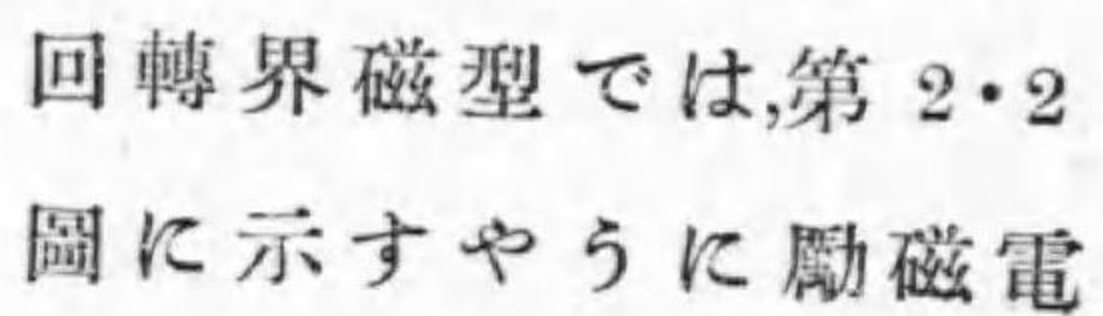 回轉界磁型では,第 2・2
圖に示すやうに勵磁電